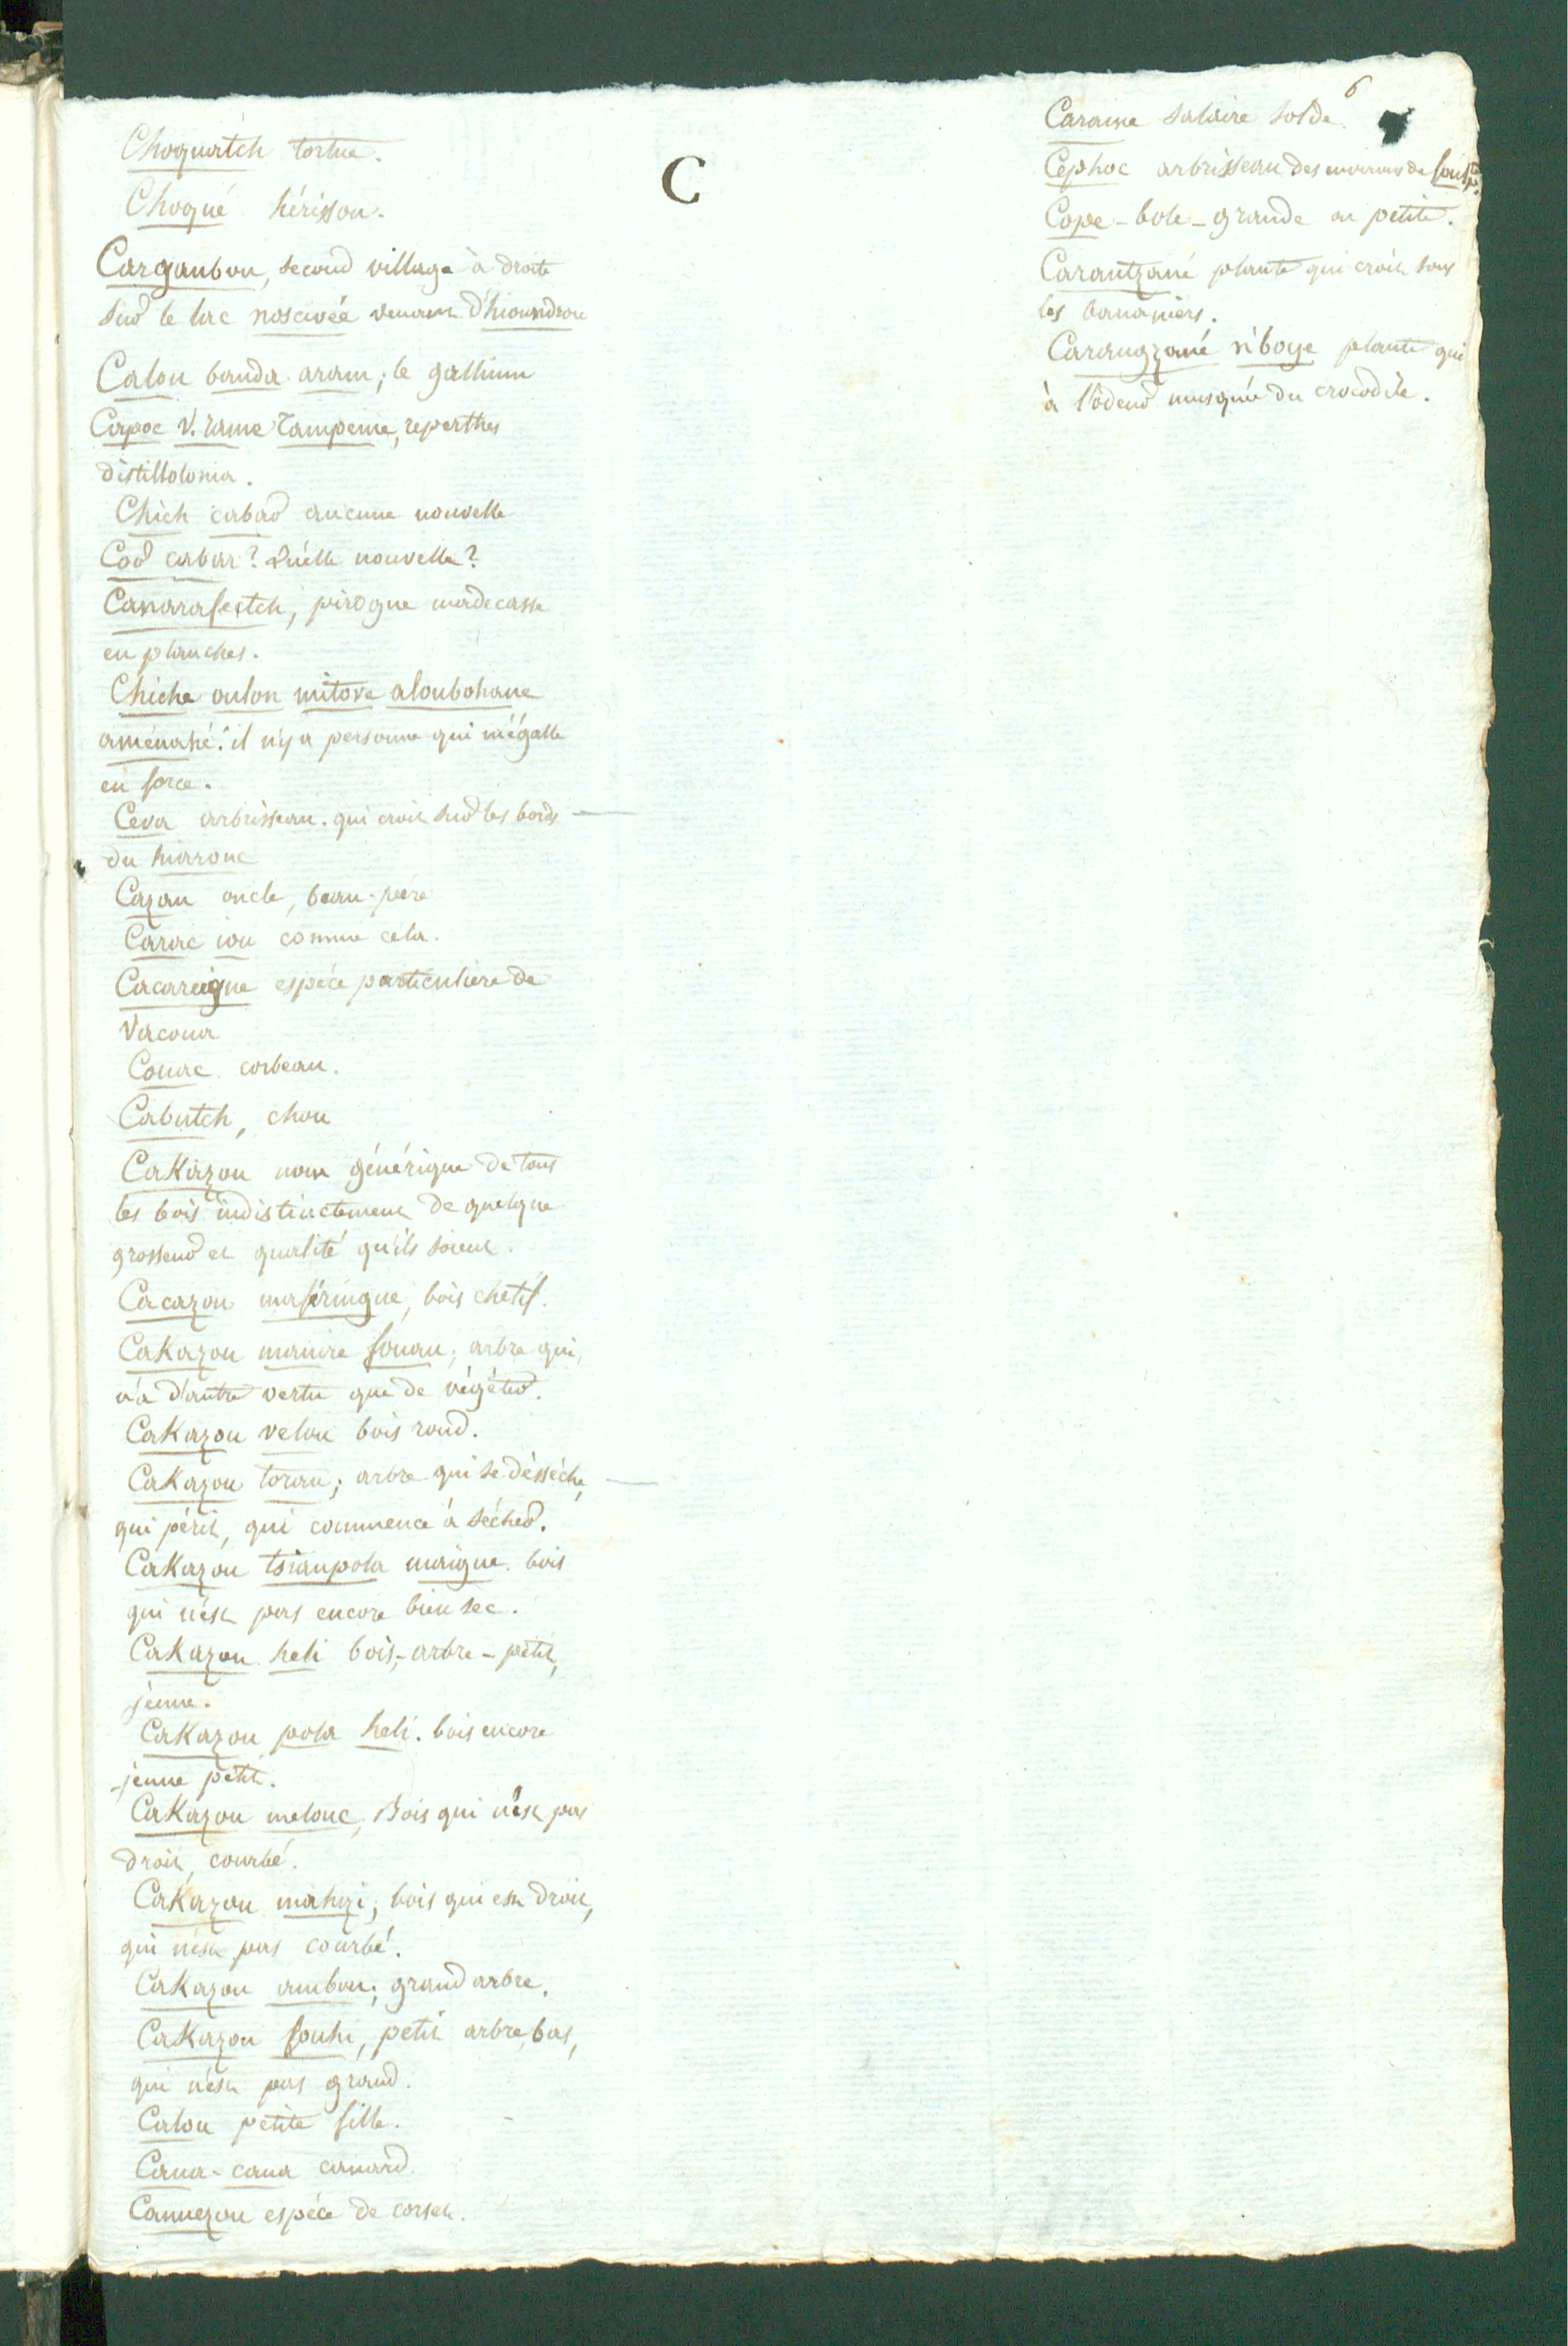 C
6
Choquatch tortue.
Choqué hérisson.
Carganbou, second village à droite
sur le lac noscivée venant d'hioundrou
Calou banda aram; le gallium
Capoc v. rame Tampeme,
distillatoria.
Chich cabar aucune nouvelle
Cor cabar? Quélle nouvelle?
Canarafestch, pirogue madecasse
en planches.
Chiche oulon mitova aloubohane
aménahé. il n'y a personne qui m'égalle
en force.
Ceva arbrisseau. qui croit sur les bords
du hiarouc
Cazau oncle, beau-père
Carac iou comme cela.
Cacareigne espéce particuliere de
Vacoua
Couac corbeau.
Cabutch, chou
CaKazou nom générique de tous
les bois indistinctement de quelque
grosseur et qualité qu'ils soient.
Cacazou maferingue, bois chetif.
CaKazou manire fouau; arbre qui,
n'a d'autre vertu que de végéter.
CaKazou velou bois rond.
CaKazou torau; arbre qui se désséche,
qui périt, qui commence à sécher.
CaKazou tsianpola maigne. bois
qui n'ést pas encore bien sec.
CaKazou heli bois,-arbre-petit,
jeune.
CaKazou pola heli. bois encore
jeune petit.
CaKazou melouc, Bois qui n'ést pas
droit, courbé.
CaKazou mahizi; bois qui est droit,
qui n'ést pas courbé.
CaKazou ambou; grand arbre.
CaKazou fouhi, petit arbre, bas,
qui n'ést pas grand.
Calou petite fille.
Cana-cana canard.
Cannezou espéce de corset.
Carama salaire solde.
Cephoc arbrisseau des environs de
Cope-bole-grande ou petite.
Carantzané plante qui croit sous
les bananiers.
Caraugzané n'boye plante qui
à l'odeur musquée du crocodile.